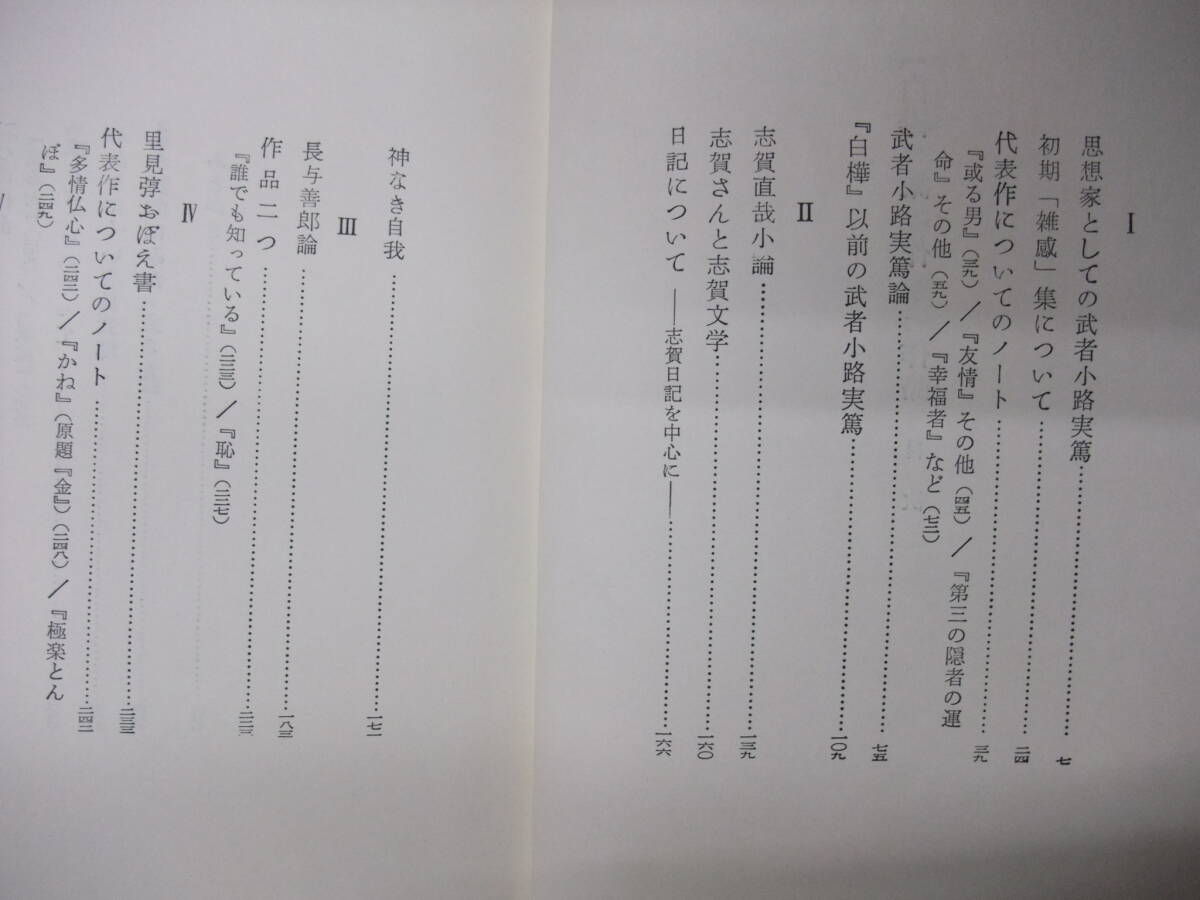 Ⅰ
思想家としての武者小路実篤……七
初期「雑感」集について……二四
代表作についてのノート……三九
『或る男』(三九)／『友情』その他(四五)／『第三の隠者の運
命』その他(五九)／『幸福者』など(七二)
武者小路実篤論……七五
『白樺』以前の武者小路実篤……一〇九
Ⅱ
志賀直哉小論……一三九
志賀さんと志賀文学……一六〇
日記について――志賀日記を中心に――……一六六
神なき自我……一七一
Ⅲ
長与善郎論……一八三
作品二つ……
『誰でも知っている』(二二三)／『恥』(二二七)
Ⅳ
里見弴おぼえ書……二三三
代表作についてのノート……二四二
『多情仏心』(二四二)／『かね』(原題『金』)(二四八)／『極楽とん
ぼ』(二四九)